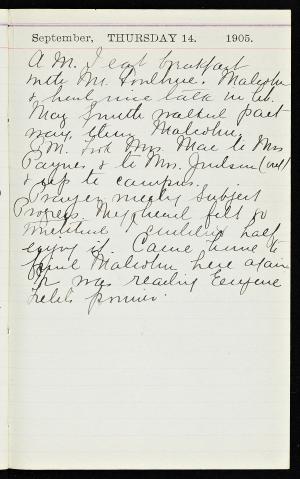 September, THURSDAY 14. 1905.
A.M. I eat breakfast
with Mr. Malcolm
& had nice talk in
May Smith walked part
way, then Malcolm.
P.M. Took Mrs. Mac to Mrs
Payne & to Mrs. Judson (out)
& up to campus.
Prayer meeting Subject
Prayers. My head felt so
couldn't half
enjoy it. Came home to
find Malcolm here again
He was reading Eugene
Field's poems.